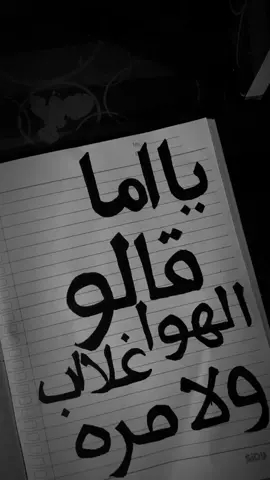 يااما
قالو
الهوا
غلاب
ولا مره